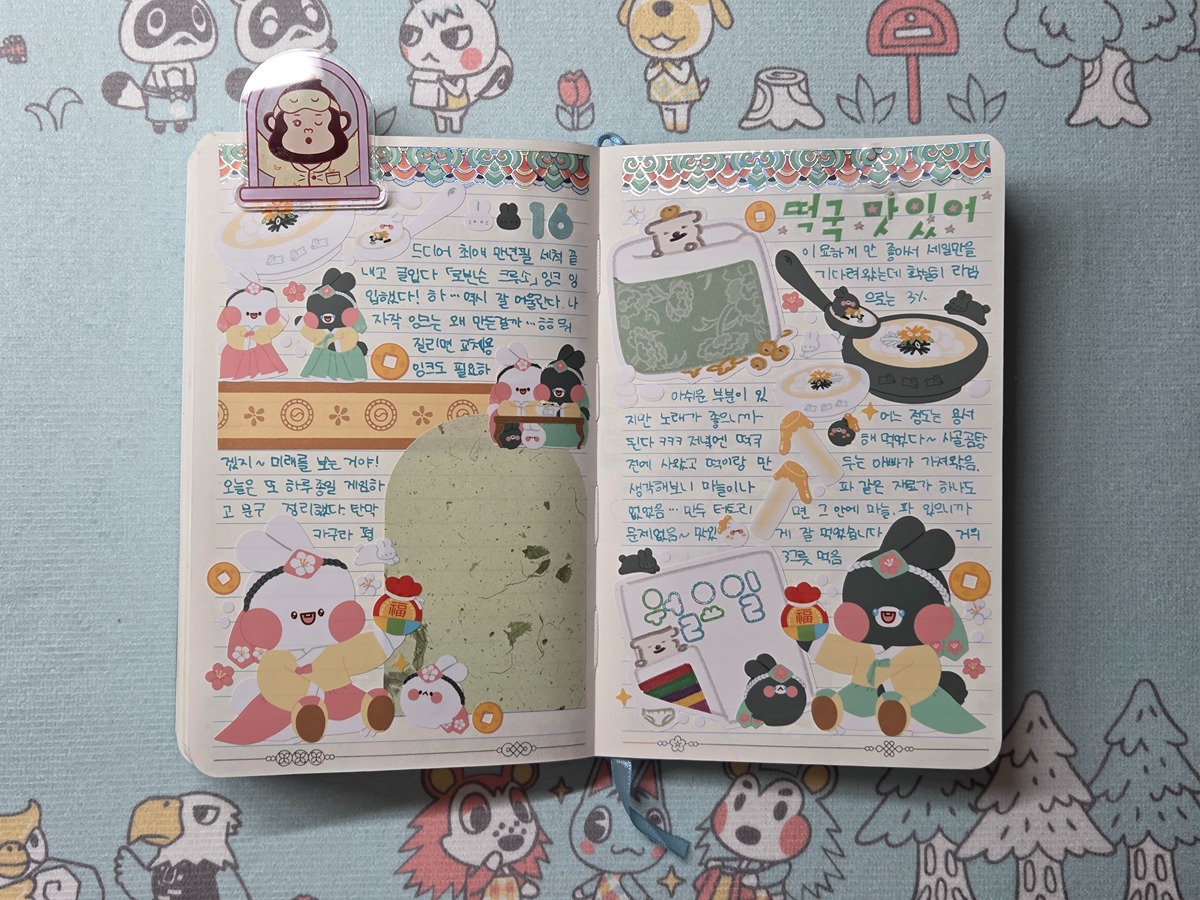 16
드디어 최애 만년필 세척 끝
내고 글입다 「로빈슨 크루소」 잉크 잉
입했다! 하… 역시 잘 어울린다. 나
자작 잉크는 왜 만든걸까… ㅎㅎ 뭐
질리면 교체용
잉크도 필요하
겠지~ 미래를 보는 거야!
오늘은 또 하루종일 게임하
고 문구 정리했다 탄막
카구라 평
福
떡국 맛있어
이 묘하게 안 좋아서 세일만을
기다려왔는데 확실히 라컴
으로는 3%
아쉬운 부분이 있
지만 노래가 좋으니까
어느 정도는 용서
된다 ㅋㅋㅋ 저녁엔 떡국
해 먹었다~ 사골곰탕
전에 사왔고 떡이랑 만
두는 아빠가 가져왔음.
생각해보니 마늘이나
파 같은 재료가 하나도
없었음… 만두 터트리
면 그 안에 마늘, 파 있으니까
문제없음~ 맛있
게 잘 먹었습니다 거의
3그릇 먹음
福